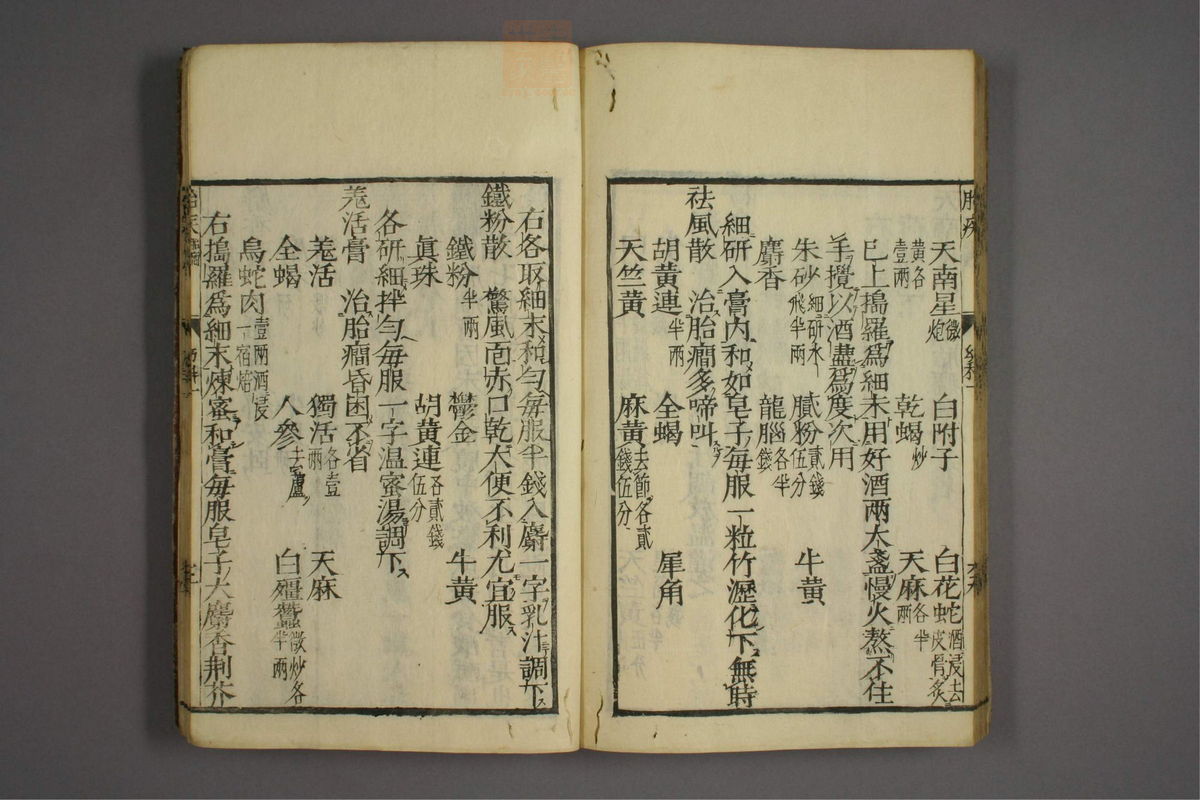 天南星微炮　白附子　白花蛇酒浸去皮骨炙
黄各壹兩　乾蝎炒　天麻各半兩
已上搗羅爲細末用好酒兩大盞慢火熬不住
手攪以酒盡爲度次用
朱砂細研水飛半兩　膩粉貳錢伍分　牛黄
麝香　龍腦各半錢
細研入膏内和如皂子毎服一粒竹瀝化下無時
祛風散　治胎癇多啼叫
胡黄連半兩　全蝎　犀角
天竺黄　麻黄去節各貳錢伍分
右各取細末和勻毎服半錢入麝一字乳汁調下
鐵粉散　驚風面赤口乾大便不利尤宜服
鐵粉半兩　鬱金　牛黄
眞珠　胡黄連各貳錢伍分
各研細拌勻毎服一字温蜜湯調下
羗活膏　治胎癇昏困不省
羗活　獨活各壹兩　天麻
全蝎　人參去蘆　白殭蠶微炒各半兩
烏蛇肉壹兩酒浸一宿焙
右搗羅爲細末煉蜜和膏毎服皂子大麝香荆芥